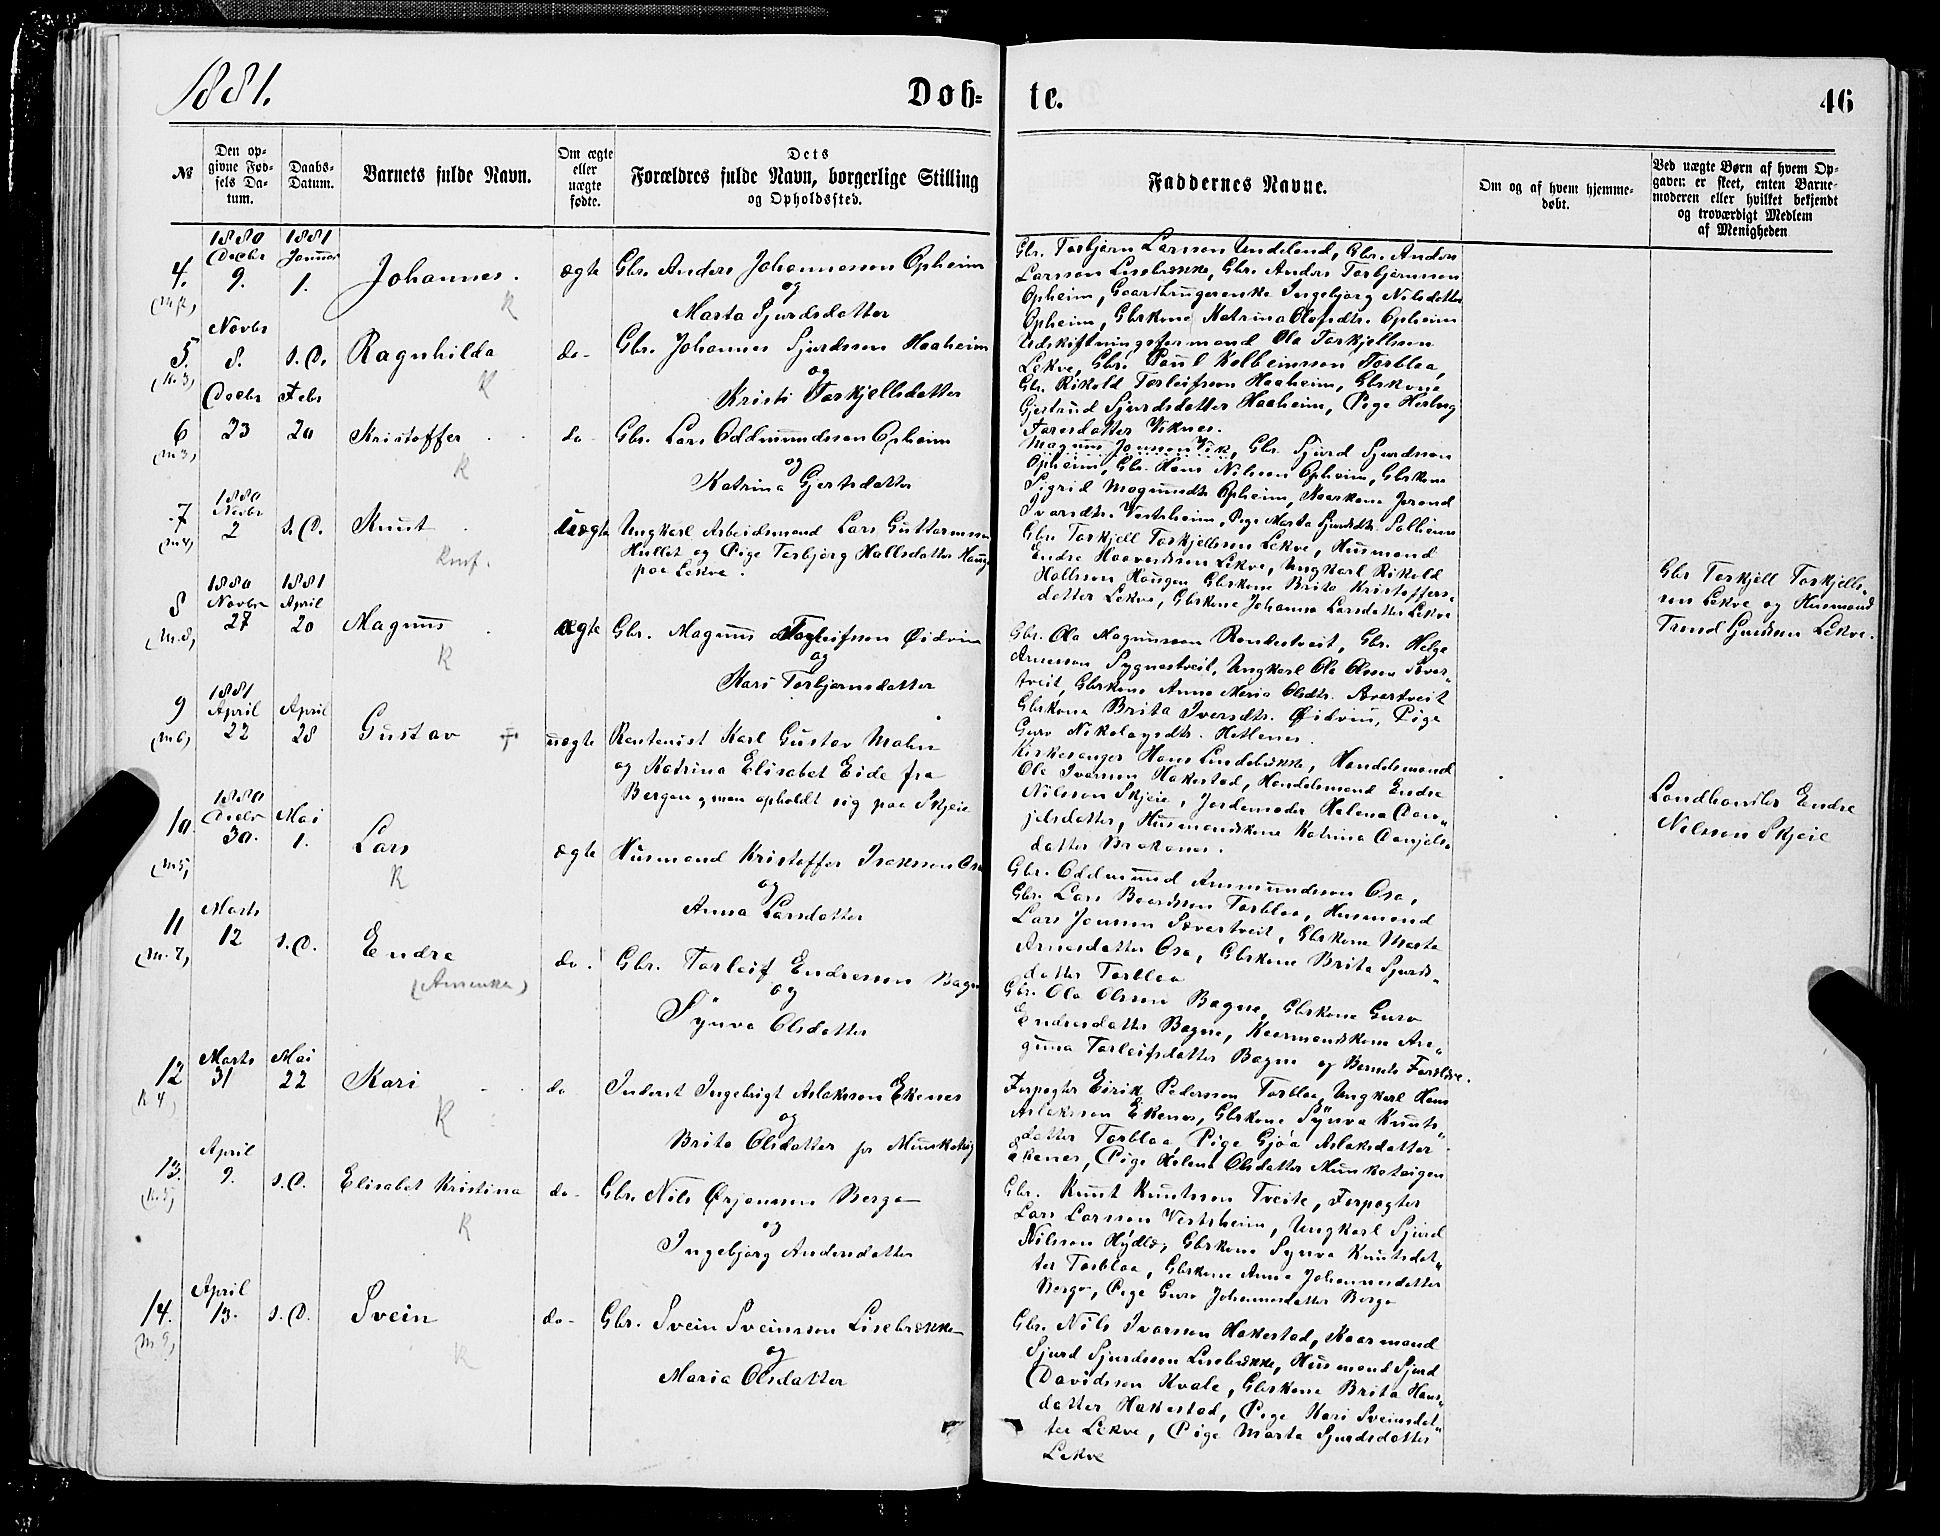 1881.
Døb=
te.
46
№
Den op=
givne Fød=
sels Da=
tum.
Daabs=
Datum.
Barnets fulde Navn.
Om ægte
eller
uægte
fødte.
Dets
Forældres fulde Navn, borgerlige Stilling
og Opholdssted.
Faddernes Navne.
Om og af hvem hjemme=
døbt.
Ved uægte Børn af hvem Op=
gaven er skeet, enten Barne=
moderen eller hvilket bekjendt
og troværdigt Medlem
af Menigheden
4.
1880
Decbr
9.
1881
Januar
1.
Johannes.
K
ægte
Gbr. Anders Johannesson Opheim
og
Marta Sjurdsdatter
Gbr. Torbjørn Larsson Undeland, Gbr. Anders
Larsson Lisebrække, Gbr. Anders Torbjørnsson
Opheim, Gaardbrugerenke Ingebjørg Nilsdatter
Opheim, Gbrkone Katrina Olavsdtr. Opheim
5.
Novbr
8.
s. D.
Ragnhilda
K
do-
Gbr. Johannes Sjurdsson Haaheim
og
Kristi Torkjellsdatter
Udskiftningsformand Ola Torkjellson
Lekve, Gbr. Paul Kolbeinsson Torblaa,
Gbr. Rikold Torleifson Haaheim, Gbrkone
Gjertrud Sjurdsdatter Haaheim, Pige Herborg
Viknes.
6
(M 3)
Decbr
23
Febr
20
Kristoffer
K
do-
Gbr. Lars Oddmundsson Opheim
og
Katrina Gjertsdatter
Magnus Jonsson Vik, Gbr. Sjurd Sjurdsson
Opheim, Gbr. Hans Nilsson Opheim, Gbrkone
Sigrid Magnusdtr Opheim, Kaarkone Jorand
Ivarsdtr. Vestrheim, Pige Marta Sjurdsdtr. Solheim
7
(M 4)
1880
Novbr
2
s. D.
Knut
Konf.
uægte
Ungkarl Arbeidsmand Lars Guttormsson
Hullet og Pige Torbjørg Hallsdatter Haugen
paa Lekve.
Gbr. Torkjell Torkjellsson Lekve, Husmand
Endre Haavardsson Lekve, Ungkarl Rikold
Hallsson Haugen, Gbrkone Brita Kristoffers-
datter Lekve, Gbrkone Johanna Larsdatter Lekve
Gbr Torkjell Torkjells-
son Lekve og Husmand
Trond Sjurdsson Lekve.
8
1880
Novbr
27
1881
April
20
Magnus
K
ægte
Gbr. Magnus Torleifsson Øidvin
og
Kari Torbjørnsdatter
Gbr. Ola Magnusson Røndestveit, Gbr. Helge
Arnesson Sygnestveit, Ungkarl Ola Olsson Sæver-
tveit, Gbrkone Anna Maria Olsdtr. Sævertveit
Gbrkone Brita Iversdtr. Øidvin, Pige
Guro Nikolaysdtr. Hetlenes.
9
(M 6)
1881
April
22
April
28
Gustav
uægte
Rentenist Karl Gustav Mohn
og Katrina Elisabet Eide fra
Bergen, men opholdt sig paa Skjeie
Kirkesanger Hans Lindebrække, Handelsmand
Ola Ivarsson Hakestad, Handelsmand Endre
Nilsson Skjeie, Jordemoder Helena Dan-
jelsdatter, Husmandskone Katrina Danjels-
datter Brakanes.
Landhandler Endre
Nilsson Skjeie
10
(M 5)
1880
Decbr
30.
Mai
1.
Lars
K
ægte
Husmand Kristoffer Isaksson Osa
og
Anna Larsdatter
Gbr. Oddmund Anmundsson Osa,
Gbr. Lars Baardsson Torblaa, Husmand
Lars Jonsson Sævertveit, Gbrkone Marta
Arnesdatter Osa, Gbrkone Brita Sjurds-
datter Torblaa
11
Marts
12
s. D.
Endre
do.
Gbr. Torleif Endresson Bagne
og
Synva Olsdatter
Gbr. Ola Olsson Bagne, Gbrkone Guro
Endresdatter Bagne, Kaarmandskone Are-
guna Torleifsdatter Bagne og Barnets Forældre.
12
Marts
31
Mai
22
Kari
K
do
Inderst Ingebrigt Aslaksson Ekenes
og
Brita Olsdatter pr Munketeig
Forpagter Eirik Pedersson Torblaa, Ungkarl Hans
Aslaksson Ekenes, Gbrkone Synva Knuts-
datter Torblaa, Pige Gjøa Aslaksdatter
Ekenes, Pige Helena Olsdatter Munketeigen
13.
April
9.
s. D.
Elisabet Kristina
K
do-
Gbr. Nils Ørjansson Berge
og
Ingebjørg Andersdatter
Gbr. Knut Knutsson Tveite, Forpagter
Lars Larsson Vestrheim, Ungkarl Sjurd
Nilsson Hydle, Gbrkone Synva Knutsdat-
ter Torblaa, Gbrkone Anna Johannesdatter
Berge, Pige Guro Johannesdatter Berge
14.
(M 9)
April
13.
s. D.
Svein
K
do-
Gbr. Svein Sveinsson Lisebrække
og
Maria Olsdatter
Gbr. Nils Ivarsson Hakestad, Kaarmand
Sjurd Sjurdsson Lisebrække, Husmand Sjurd
Davidsson Kvale, Gbrkone Brita Hans-
datter Hakestad, Pige Kari Sveinsdat-
ter Lekve, Pige Marta Sjurdsdatter
Lekve